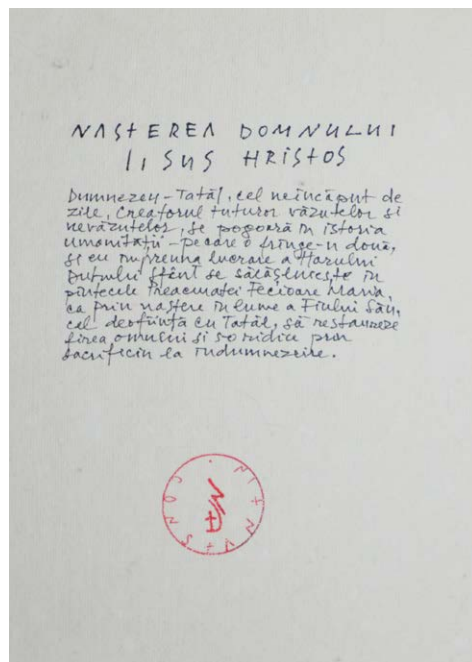 NAȘTEREA DOMNULUI
IISUS HRISTOS
Dumnezeu-Tatăl, cel neîncăput de
zile, Creatorul tuturor văzutelor și
nevăzutelor, se pogoară în istoria
umanității - pe care o frînge-n două,
și cu împreuna lucrare a Harului
Duhului Sfînt se sălășluiește în
pîntecele Preacuratei Fecioare Maria,
ca prin naștere în lume a Fiului Său,
cel deoființă cu Tatăl, să restaureze
firea omului și s-o ridice prin
sacrificiu la îndumnezeire.